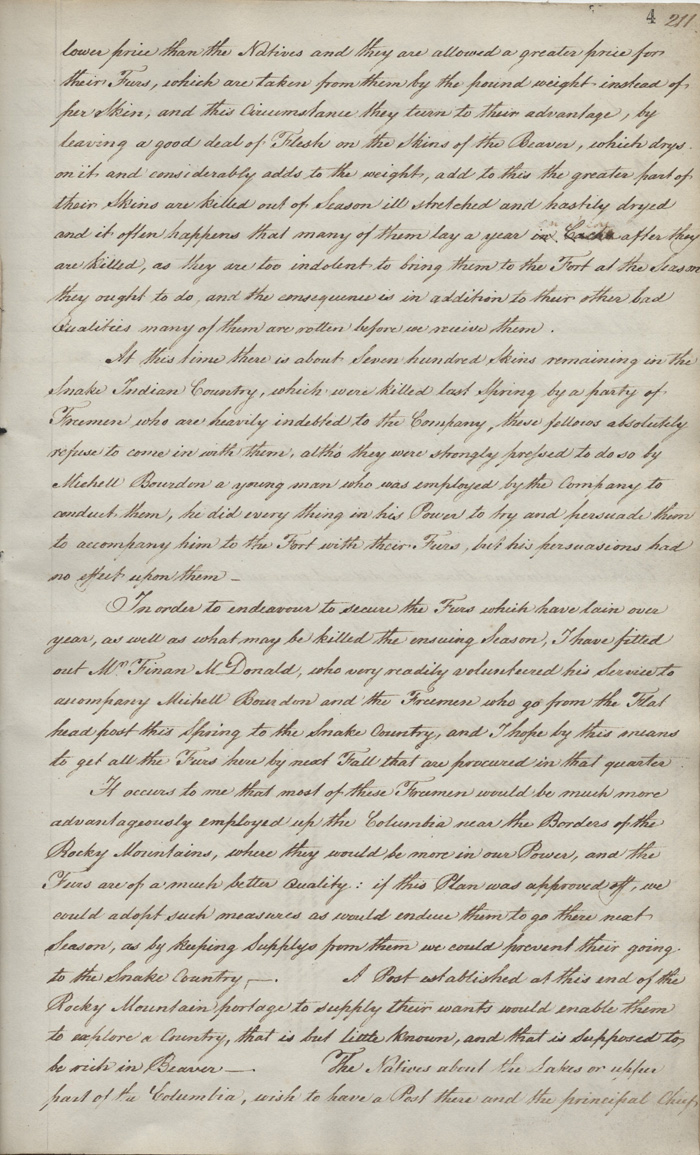 4 211
lower price than the Natives and they are allowed a greater price for
their Furs, which are taken from them by the pound weight instead of
per Skin, and this Circumstance they turn to their advantage, by
leaving a good deal of Flesh on the Skins of the Beaver, which drys
on it and considerably adds to the weight, add to this the greater part of
their Skins are killed out of Season ill stretched and hastily dryed
and it often happens that many of them lay a year in after they
are killed, as they are too indolent to bring them to the Fort at the Season
they ought to do, and the consequence is in addition to their other bad
Qualities many of them are rotten before we receive them.
At this time there is about Seven hundred Skins remaining in the
Snake Indian Country, which were killed last Spring by a party of
Freemen who are heavily indebted to the Company, these fellows absolutely
refuse to come in with them, altho they were strongly pressed to do so by
Michell Bourdon a young man who was employed by the Company to
conduct them, he did every thing in his Power to try and persuade them
to accompany him to the Fort with their Furs, but his persuasions had
no effect upon them —
In order to endeavour to secure the Furs which have lain over
year, as well as what may be killed the ensuing Season, I have fitted
out Mr. Finan McDonald, who very readily volunteered his Service to
accompany Michell Bourdon and the Freemen who go from the Flat
head post this Spring to the Snake Country, and I hope by this means
to get all the Furs here by next Fall that are procured in that quarter
It occurs to me that most of these Freemen would be much more
advantageously employed up the Columbia near the Borders of the
Rocky Mountains, where they would be more in our Power, and the
Furs are of a much better Quality: if this Plan was approved off, we
could adopt such measures as would endeue them to go there next
Season, as by keeping Supplys from them we could prevent their going
to the Snake Country —. A Post established at this end of the
Rocky Mountain portage to supply their wants would enable them
to explore a Country, that is but little known, and that is supposed to
be rich in Beaver —. The Natives about the Lakes or upper
part of the Columbia, wish to have a Post there and the principal Chief